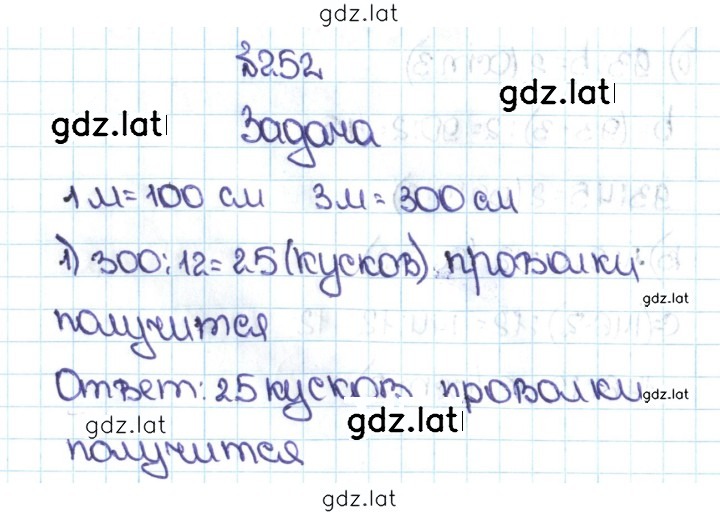 gdz.lat
№252
gdz.lat
gdz.lat
Задача
1 м = 100 см 3 м = 300 см
1) 300 : 12 = 25 (кусков) проволки
gdz.lat
получится
Ответ: 25 кусков проволки
gdz.lat
gdz.lat
gdz.lat
получится
gdz.lat